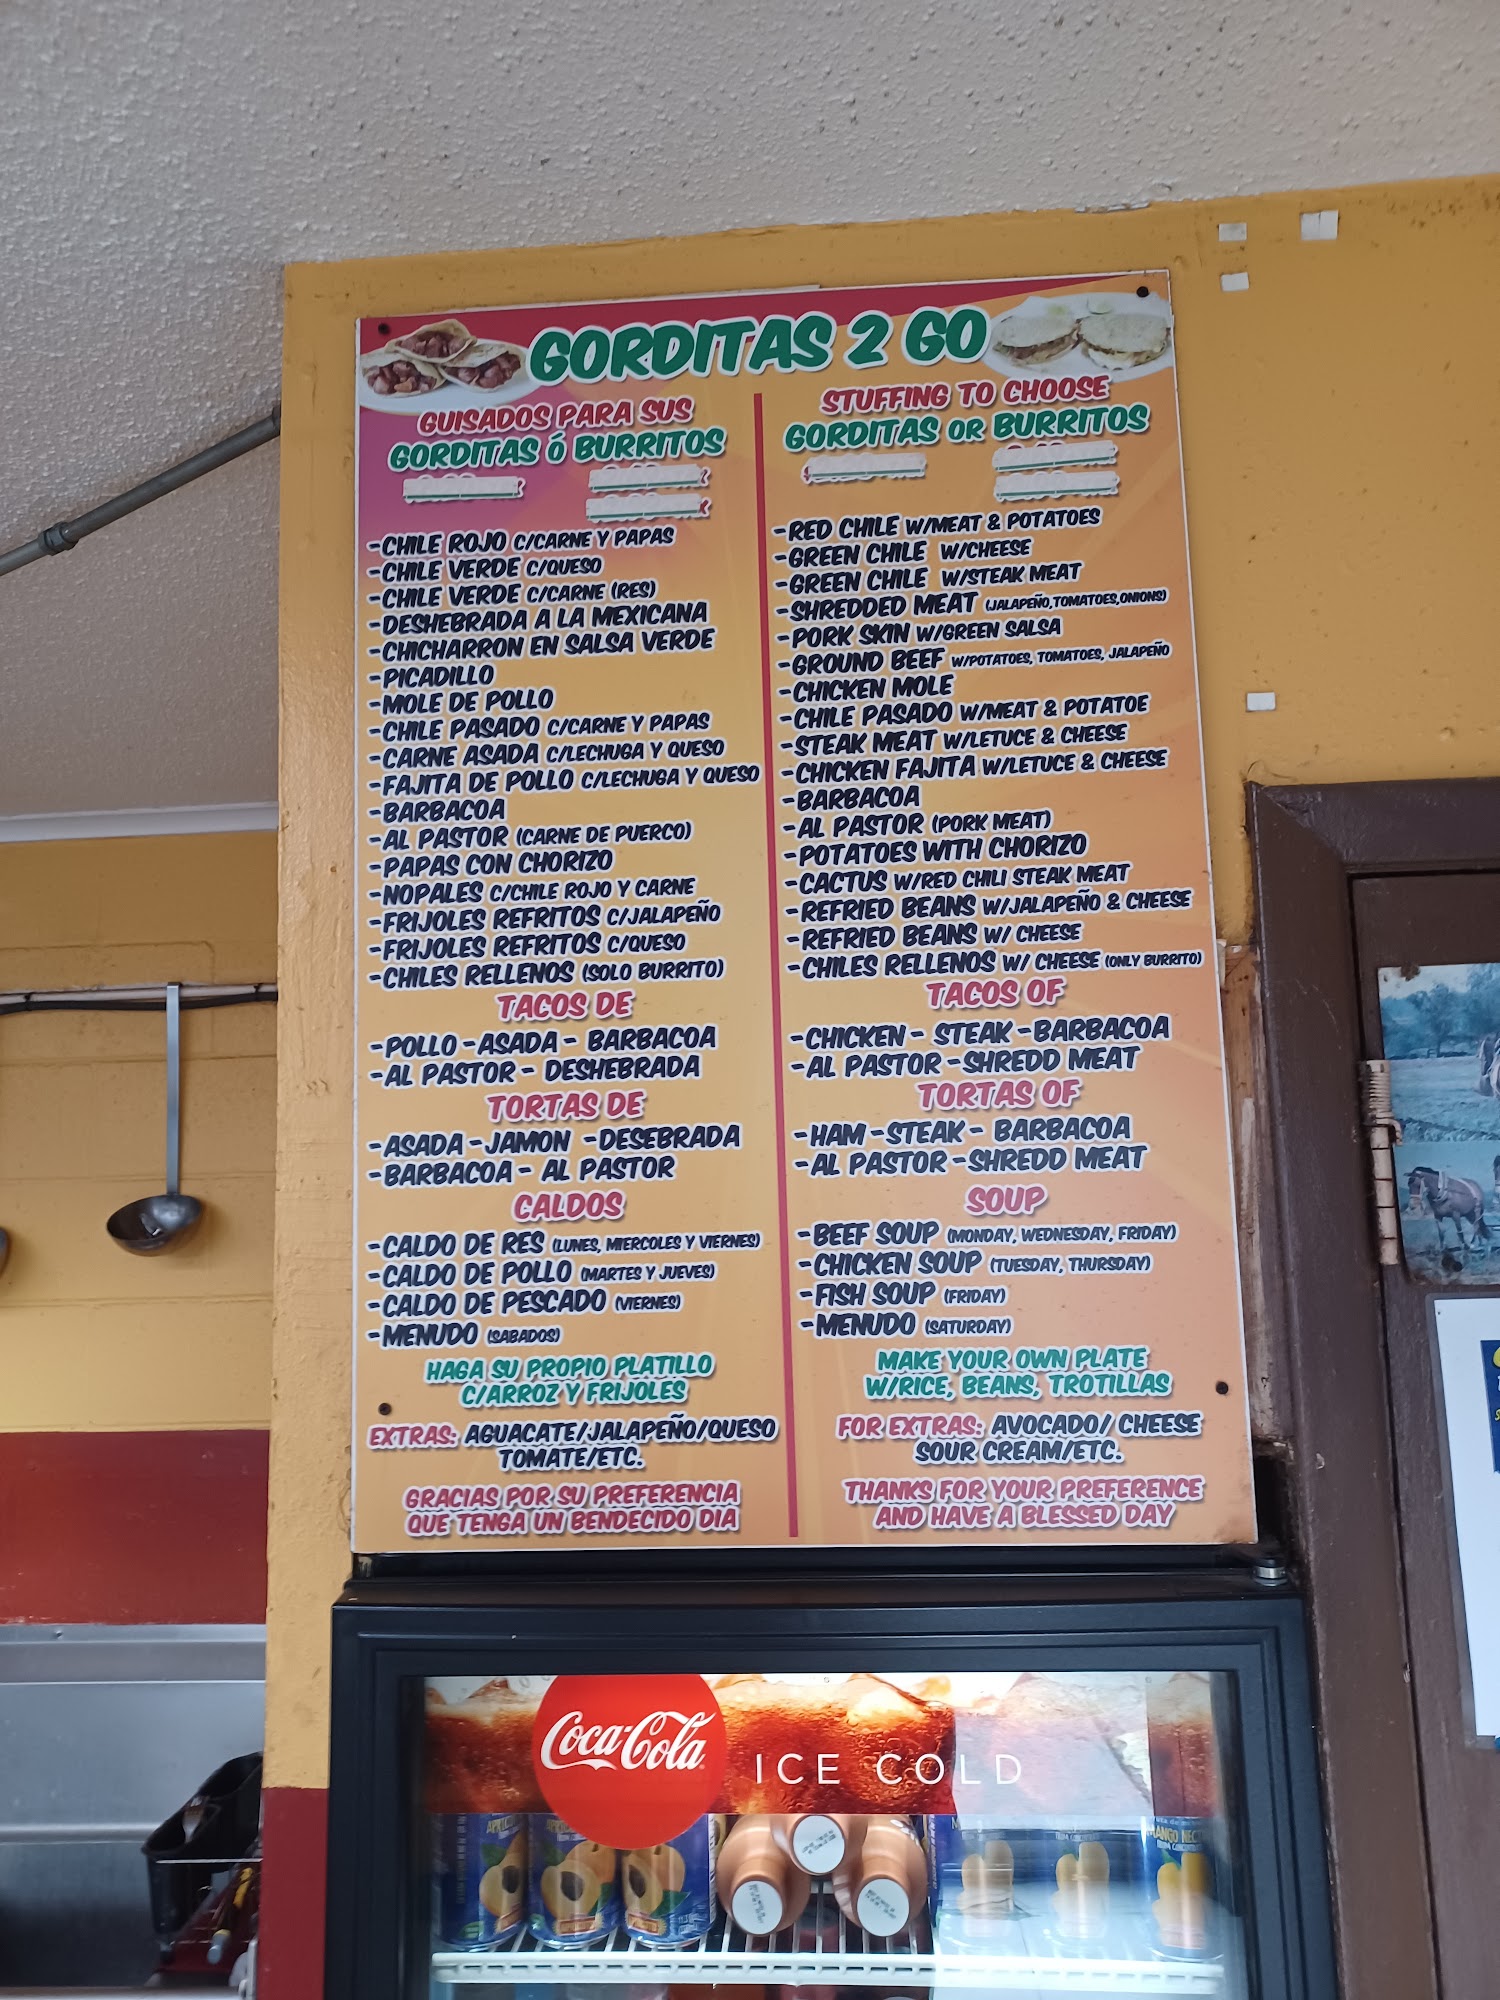 GORDITAS 2 GO
GUISADOS PARA SUS
GORDITAS ó BURRITOS
-CHILE ROJO C/CARNE Y PAPAS
-CHILE VERDE C/QUESO
-CHILE VERDE C/CARNE (RES)
-DESHEBRADA A LA MEXICANA
-CHICHARRON EN SALSA VERDE
-PICADILLO
-MOLE DE POLLO
-CHILE PASADO C/CARNE Y PAPAS
-CARNE ASADA C/LECHUGA Y QUESO
-FAJITA DE POLLO C/LECHUGA Y QUESO
-BARBACOA
-AL PASTOR (CARNE DE PUERCO)
-PAPAS CON CHORIZO
-NOPALES C/CHILE ROJO Y CARNE
-FRIJOLES REFRITOS C/JALAPEÑO
-FRIJOLES REFRITOS C/QUESO
-CHILES RELLENOS (SOLO BURRITO)
TACOS DE
-POLLO -ASADA - BARBACOA
-AL PASTOR - DESHEBRADA
TORTAS DE
-ASADA -JAMON -DESEBRADA
-BARBACOA - AL PASTOR
CALDOS
-CALDO DE RES (LUNES, MIERCOLES Y VIERNES)
-CALDO DE POLLO (MARTES Y JUEVES)
-CALDO DE PESCADO (VIERNES)
-MENUDO (SABADOS)
HAGA SU PROPIO PLATILLO
C/ARROZ Y FRIJOLES
EXTRAS: AGUACATE/JALAPEÑO/QUESO
TOMATE/ETC.
GRACIAS POR SU PREFERENCIA
QUE TENGA UN BENDECIDO DIA
STUFFING TO CHOOSE
GORDITAS OR BURRITOS
-RED CHILE W/MEAT & POTATOES
-GREEN CHILE W/CHEESE
-GREEN CHILE W/STEAK MEAT
-SHREDDED MEAT (JALAPEÑO,TOMATOES,ONIONS)
-PORK SKIN W/GREEN SALSA
-GROUND BEEF W/POTATOES, TOMATOES, JALAPEÑO
-CHICKEN MOLE
-CHILE PASADO W/MEAT & POTATOE
-STEAK MEAT W/LETUCE & CHEESE
-CHICKEN FAJITA W/LETUCE & CHEESE
-BARBACOA
-AL PASTOR (PORK MEAT)
-POTATOES WITH CHORIZO
-CACTUS W/RED CHILI STEAK MEAT
-REFRIED BEANS W/JALAPEÑO & CHEESE
-REFRIED BEANS W/ CHEESE
-CHILES RELLENOS W/ CHEESE (ONLY BURRITO)
TACOS OF
-CHICKEN - STEAK -BARBACOA
-AL PASTOR -SHREDD MEAT
TORTAS OF
-HAM -STEAK - BARBACOA
-AL PASTOR -SHREDD MEAT
SOUP
-BEEF SOUP (MONDAY, WEDNESDAY, FRIDAY)
-CHICKEN SOUP (TUESDAY, THURSDAY)
-FISH SOUP (FRIDAY)
-MENUDO (SATURDAY)
MAKE YOUR OWN PLATE
W/RICE, BEANS, TROTILLAS
FOR EXTRAS: AVOCADO/ CHEESE
SOUR CREAM/ETC.
THANKS FOR YOUR PREFERENCE
AND HAVE A BLESSED DAY
Coca-Cola ICE COLD
MANGO